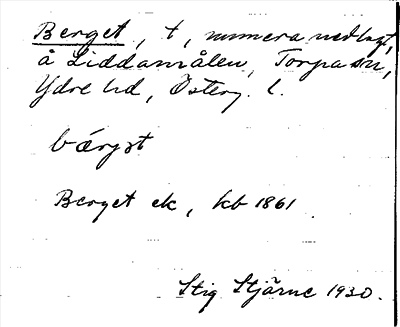 Berget, t, numera nedlagt,
å Liddamålen, Torpa sn,
Ydre hd, Österg. l.
bærjət
Berget ek, kb 1861
Stig Stjärne 1930.